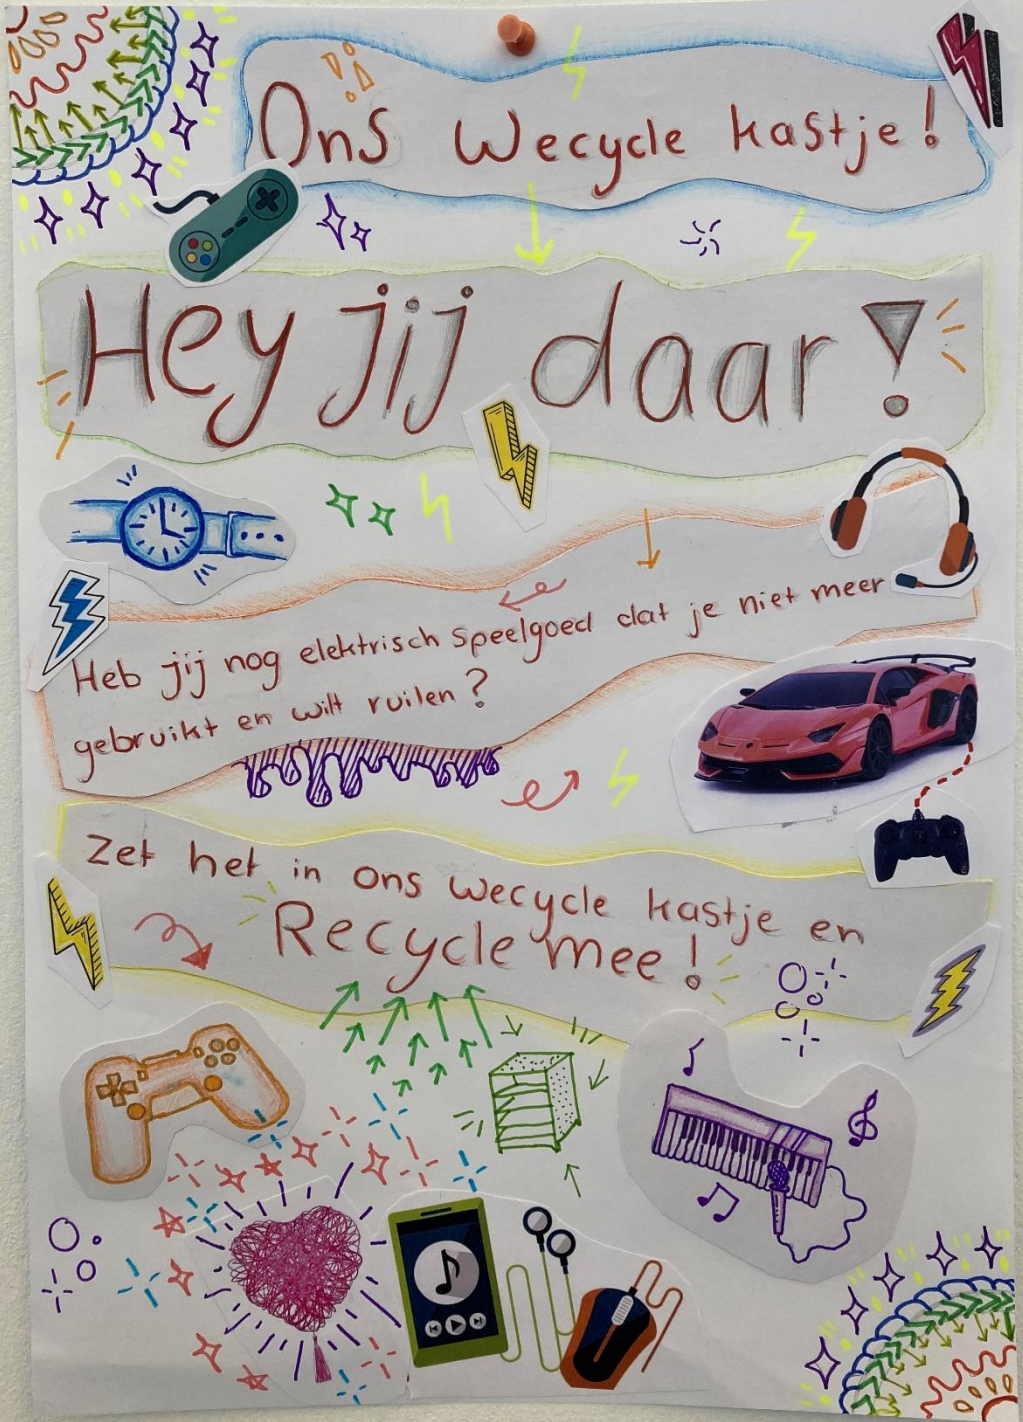 Ons Wecycle kastje!
Hey jij daar!
Heb jij nog elektrisch speelgoed dat je niet meer
gebruikt en wilt ruilen?
Zet het in ons wecycle kastje en
Recycle mee!